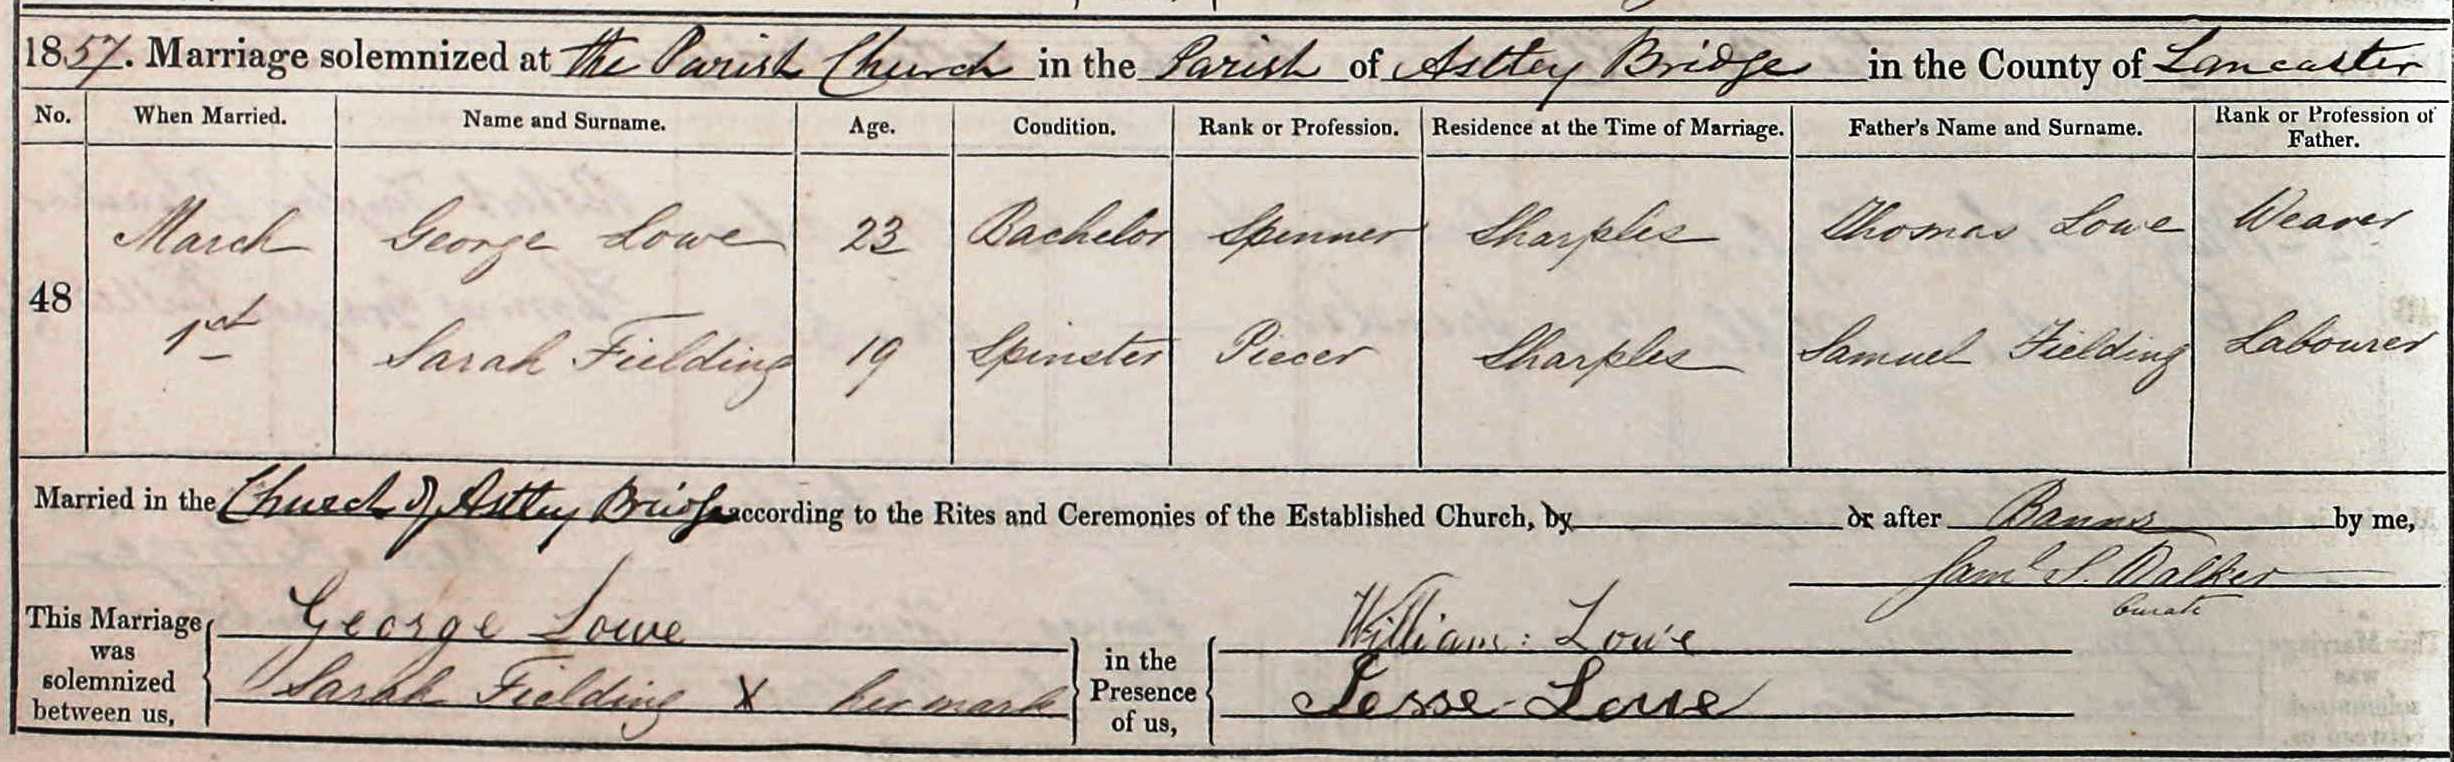 1857. Marriage solemnized at the Parish Church in the Parish of Astley Bridge in the County of Lancaster
No. When Married. Name and Surname. Age. Condition. Rank or Profession. Residence at the Time of Marriage. Father's Name and Surname. Rank or Profession of Father.
48 March George Lowe 23 Bachelor Spinner Sharples Thomas Lowe Weaver
1st Sarah Fielding 19 Spinster Piecer Sharples Samuel Fielding Labourer
Married in the Church of Astley Bridge according to the Rites and Ceremonies of the Established Church, by or after Banns by me,
Saml S. Walker
Curate
This Marriage was solemnized between us, George Lowe
Sarah Fielding X her mark
in the Presence of us, William: Lowe
Jesse Lowe